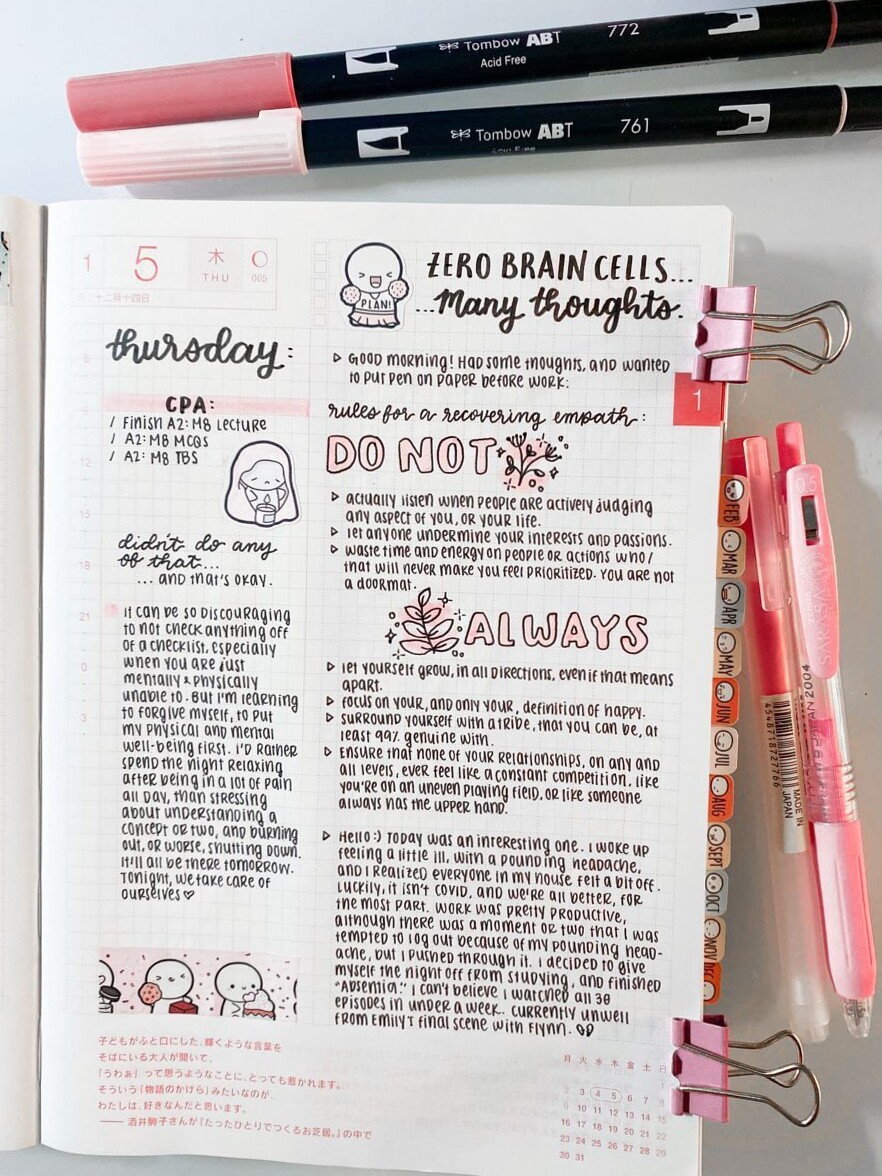 Tombow ABT 772
Acid Free
Tombow ABT 761
1
5
木
THU
005
十二月十四日
PLAN!
ZERO BRAIN CELLS...
...Many thoughts.
thursday:
CPA:
/ Finish A2: M8 Lecture
/ A2: M8 MCQS
/ A2: M8 TBS
didn't do any
of that...
... and that's okay.
It can be so discouraging
to not check anything off
of a checklist, especially
when you are just
mentally & physically
unable to. But I'm learning
to forgive myself, to put
my physical and mental
well-being first. I'd rather
spend the night relaxing
after being in a lot of pain
all day, than stressing
about understanding a
concept or two, and burning
out, or worse, shutting down.
It'll all be there tomorrow.
Tonight, we take care of
ourselves ♡
6
12
15
18
21
0
3
▷ Good morning! Had some thoughts, and wanted
to put pen on paper before work:
rules for a recovering empath:
DO NOT
▷ actually listen when people are actively judging
any aspect of you, or your life.
▷ let anyone undermine your interests and passions.
▷ waste time and energy on people or actions who/
that will never make you feel prioritized. You are not
a doormat.
ALWAYS
▷ let yourself grow, in all directions, even if that means
apart.
▷ focus on your, and only your, definition of happy.
▷ surround yourself with a tribe, that you can be, at
least 99% genuine with.
▷ Ensure that none of your relationships, on any and
all levels, ever feel like a constant competition, like
you're on an uneven playing field, or like someone
always has the upper hand.
▷ Hello :) Today was an interesting one. I woke up
feeling a little ill, with a pounding headache,
and I realized everyone in my house felt a bit off.
Luckily, it isn't covid, and we're all better, for
the most part. Work was pretty productive,
although there was a moment or two that I was
tempted to log out because of my pounding head-
ache, but I pushed through it. I decided to give
myself the night off from studying, and finished
"Absentia." I can't believe I watched all 30
episodes in under a week. Currently unwell
from Emily's final scene with Flynn.
1
FEB
MAR
APR
MAY
JUN
JUL
AUG
SEPT
OCT
NOV
DEC
0.5
SARASA
JAPAN 2004
4548718727766
MADE IN
JAPAN
子どもがふと口にした、輝くような言葉を
そばにいる大人が聞いて、
「うわぁ」って思うようなことに、とっても惹かれます。
そういう「物語のかけら」みたいなのが、
わたしは、好きなんだと思います。
—— 酒井駒子さんが『たったひとりでつくるお芝居。』の中で
月 火 水 木 金 土 日
1
2 3 4 5 6 7 8
9 10 11 12 13 14 15
16 17 18 19 20 21 22
23 24 25 26 27 28 29
30 31